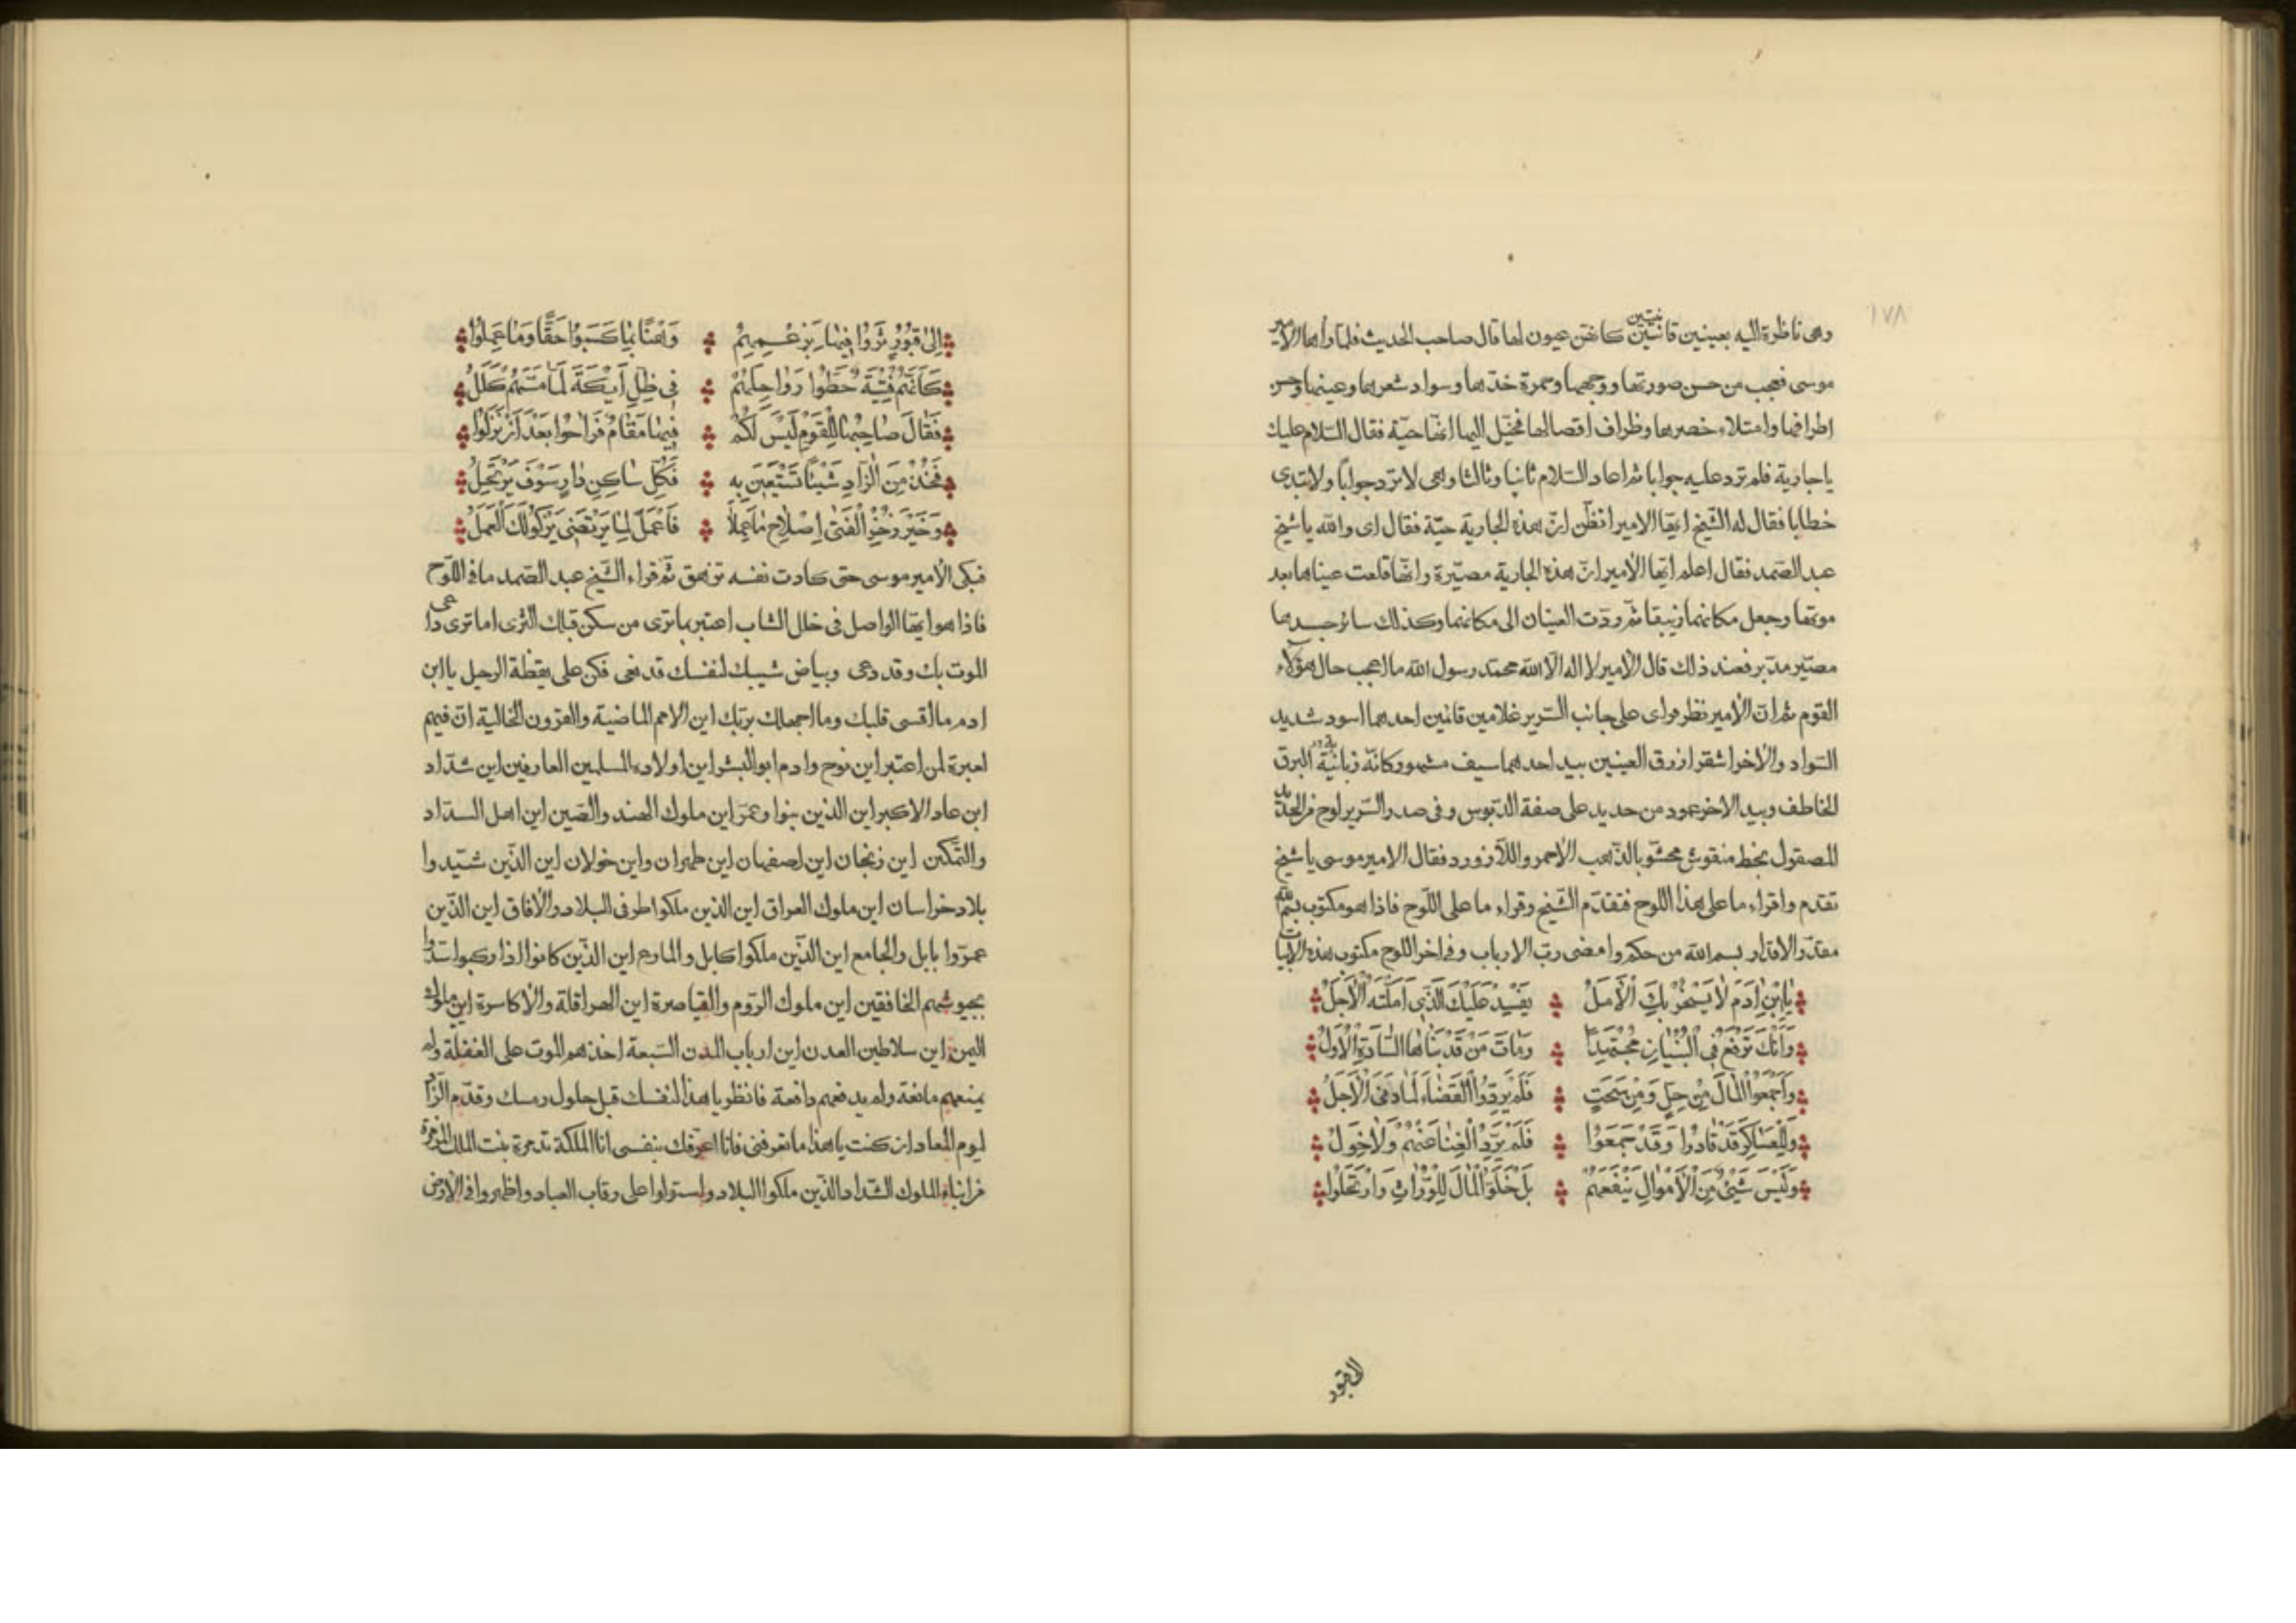 ١٧٨
وهى ناظرة اليه بعينين قانتين كانهن عيون لها قال صاحب الحديث فلما راها الامير
موسى فعجب من حسن صورتها ووجهها وحمرة خدّها وسواد شعرها وعينها وحسن
اطرافها وامتلاء خصرها وظراف اقصالها فخيّل اليها انها حيّة فقال السّلام عليك
يا جارية فلم ترد عليه جوابا ثم اعاد السّلام ثانيا وثالثا وهى لا ترد جوابا ولا تبتدى
خطابا فقال له الشّيخ ايها الامير اتظن انّ هذه الجارية حيّة فقال اى والله يا شيخ
عبد الصّمد فقال اعلم ايّها الامير انّ هذه الجارية مصبّرة وانّها قلعت عيناها بعد
موتها وجعل مكانهما زيبقا ثم ردّت العينان الى مكانهما وكذلك سائر جسدها
مصبّر مدبر فعند ذلك قال الامير لا اله الّا الله محمّد رسول الله ما اعجب حال هؤلاء
القوم ثم ان الامير نظر فراى على جانب السّرير غلامين قانين احدهما اسود شديد
السّواد والاخر اشقر ازرق العينين بيد احدهما سيف مشهور وكانّه زبانية البرق
الخاطف وبيد الاخر عمود من حديد على صفة الدّبوس وفى صدر السّرير لوح من الحديد
المصقول بخط منقوش محشّو بالذّهب الاحمر واللّازورد فقال الامير موسى يا شيخ
تقدم واقراء ما على هذا اللوح فتقدّم الشّيخ وقراء ما على اللّوح فاذا هو مكتوب بسم الله
مقدّر الاقدار بسم الله من حكم وامضى ربّ الارباب وفى اخر اللوح مكتوب هذه الابيات
يَا ابْنَ اٰدَمَ لَا يَسْخَرُ بِكَ الْأَمَلُ يَفْسِدْ عَلَيْكَ الَّذِى اَمَلْتَهُ الْاَجَلُ
وَاَنْتَ تَرْفَعُ فِى الْبُنْيَانِ مُجْتَهِدًا وَمَاتَ مَنْ قَدْ بَنَاهَا السَّادَةُ الْاُوَلُ
وَاَجْمَعُوا الْمَالَ مِنْ حِلٍّ وَمِنْ سَحَتٍ فَلَمْ يَرِدُّوا الْقَضَاءَ لَمَّا دَنَى الْاَجَلُ
وَلِلْعَسَاكِرِ قَدْ قَادُوا وَقَدْ جَمَعُوا فَلَمْ يَرُدَّ الْغِنَا عَنْهُمْ وَلَا خَوَلُ
وَلَيْسَ شَيْئٌ مِنَ الْاَمْوَالِ يَنْفَعُهُمْ بَلْ خَلَّوُا الْمَالَ لِلْوُرَّاثِ وَارْتَحَلُوا
الى قبور
اِلٰى قُبُورٍ ثَوَوْا فِيهَا بِزَعْمِهِمْ وَهْنًا بِمَا كَسَبُوا حَقًّا وَمَا عَمِلُوا
كَاَنَّهُمْ فِتْيَةٌ حَطُّوا رَوَاحِلَهُمْ فِى ظِلِّ اَيْكَةَ لَمَّا مَسَّهُمْ كَلَلُ
فَقَالَ صَاحِبُهَا لِلْقَوْمِ لَيْسَ لَكُمْ فِيهَا مَقَامٌ فَرَاحُوا بَعْدَ اَنْ نَزَلُوا
فَخُذْ مِنَ الزَّادِ شَيْئًا تَسْتَعِينَ بِهِ فَكُلُّ سَاكِنِ دَارٍ سَوْفَ يَرْتَحِلُ
وَخَيْرُ ذُخْرِ الْفَتٰى اِصْلَاحُ مَا عَمِلَا فَاعْمَلْ لِمَا يَرْتَضِى يَزْكُو لَكَ الْعَمَلُ
فبكى الامير موسى حتى كادت نفسه تزهق ثم قراء الشّيخ عبد الصّمد ما فى اللّوح
فاذا هو ايّها الواصل فى خلل الشاب اعتبر بما ترى من سكن قبلك الثرى اما ترى داعى
الموت بك وقد دعى وبياض شيبك لنفسك قد نعى فكن على يقظة الرحيل يا ابن
ادم ما اقسى قلبك وما اجهلك بربّك اين الامم الماضية والقرون الخالية ان فيهم
لعبرة لمن اعتبر اين نوح وادم ابو البشر اين اولاد المسلمين العارفين اين شدّاد
ابن عاد الاكبر اين الذين بنوا وعمّر اين ملوك الهند والصّين اين اهل السدّاد
والتّمكين اين زنجان اين اصفهان اين طهران واين خولان اين الذّين شيّدوا
بلاد خراسان اين ملوك العراق اين الذين ملكوا اطرف البلاد والافاق اين الذّين
عمرّوا بابل والجامع اين الذّين ملكوا كابل والمارح اين الذّين كانوا اذا ركبوا سدّوا
بجيوشهم الخافقين اين ملوك الرّوم والقياصرة اين الهراقلة والاكاسرة اين ملوك
اليمن اين سلاطين العدن اين ارباب المدن السّبعة اخذهم الموت على الغفلة ولم
يمنعهم مانعة ولم يدفعهم دافعة فانظر يا هذا لنفسك قبل حلول رمسك وقدّم الزّاد
ليوم المعاد ان كنت يا هذا ما تعرفنى فانا اعرّفك بنفسى انا الملكة تدمرة بنت الملك
من ابناء الملوك الشّداد الذّين ملكوا البلاد واستولوا على رقاب العباد واظهروا فى الارض